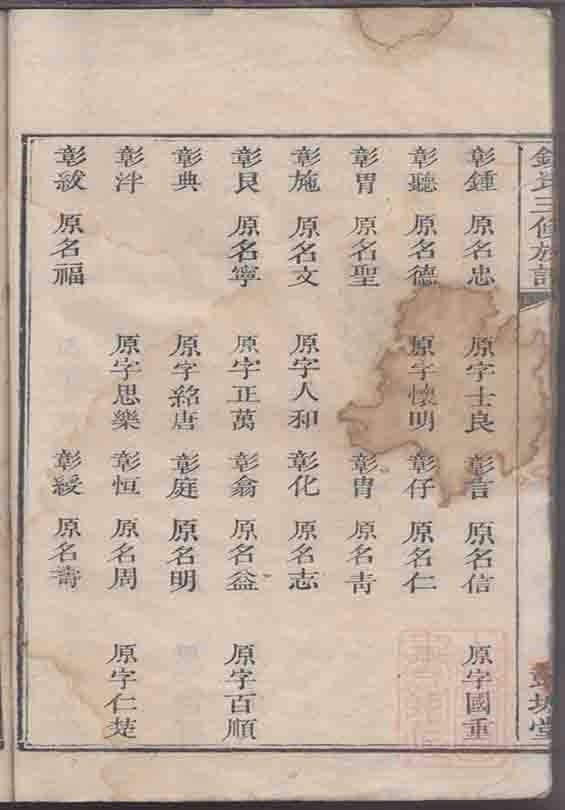 三修族譜
彰鍾 原名忠 原字士良 彰言 原名信 原字國重
彰聽 原名德 原字懷明 彰仔 原名仁
彰胃 原名聖 彰胄 原名靑
彰施 原名文 原字人和 彰化 原名志
彰艮 原名寧 原字正萬 彰翕 原名益 原字百順
彰典 原字銘唐 彰庭 原名明
彰泮 原字思樂 彰恒 原名周 原字仁楚
彰紱 原名福 彰綬 原名壽
堂